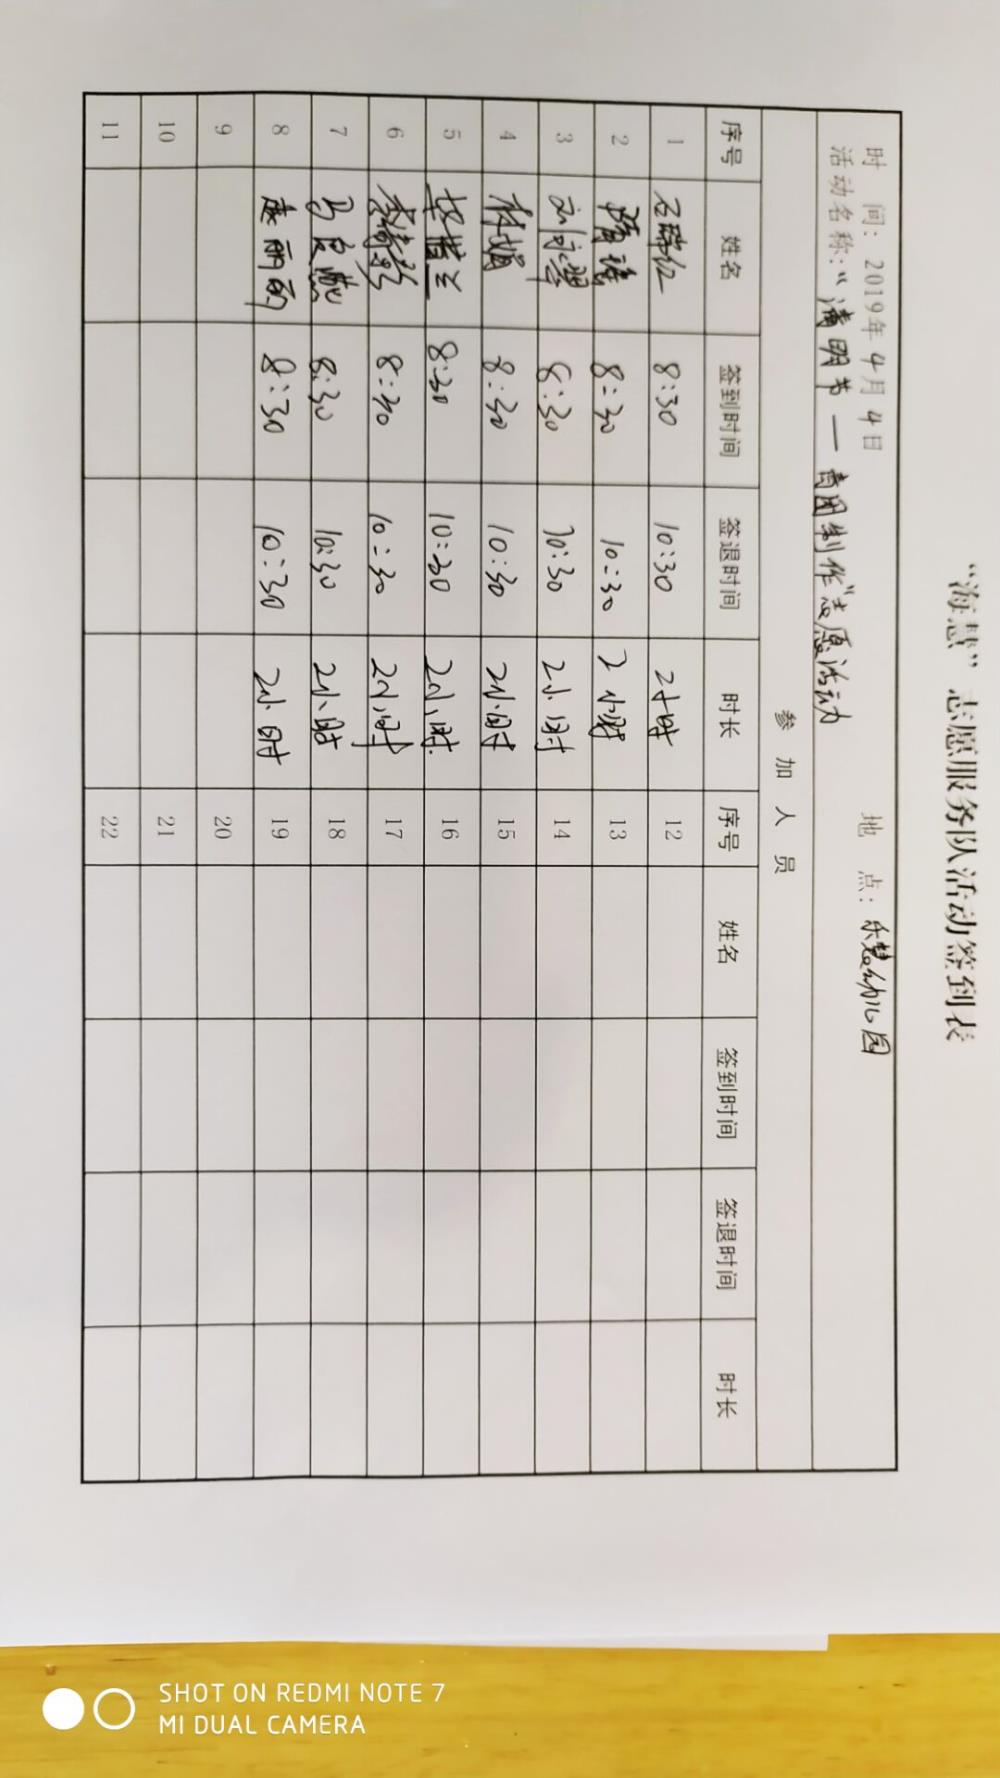 “海慧”志愿服务队活动签到表
时 间：2019年4月4日 地 点：乐慧幼儿园
活动名称：“清明节—青团制作”志愿活动
参 加 人 员
序号 姓名 签到时间 签退时间 时长 序号 姓名 签到时间 签退时间 时长
1 8:30 10:30 2小时 12
2 8:30 10:30 2小时 13
3 8:30 10:30 2小时 14
4 林娟 8:30 10:30 2小时 15
5 8:30 10:30 2小时 16
6 8:30 10:30 2小时 17
7 8:30 10:30 2小时 18
8 8:30 10:30 2小时 19
9 20
10 21
11 22
SHOT ON REDMI NOTE 7
MI DUAL CAMERA